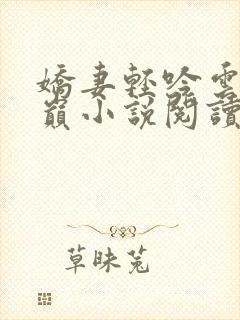 嬌妻輕吟雲
巔小說閱讀
草昧菟